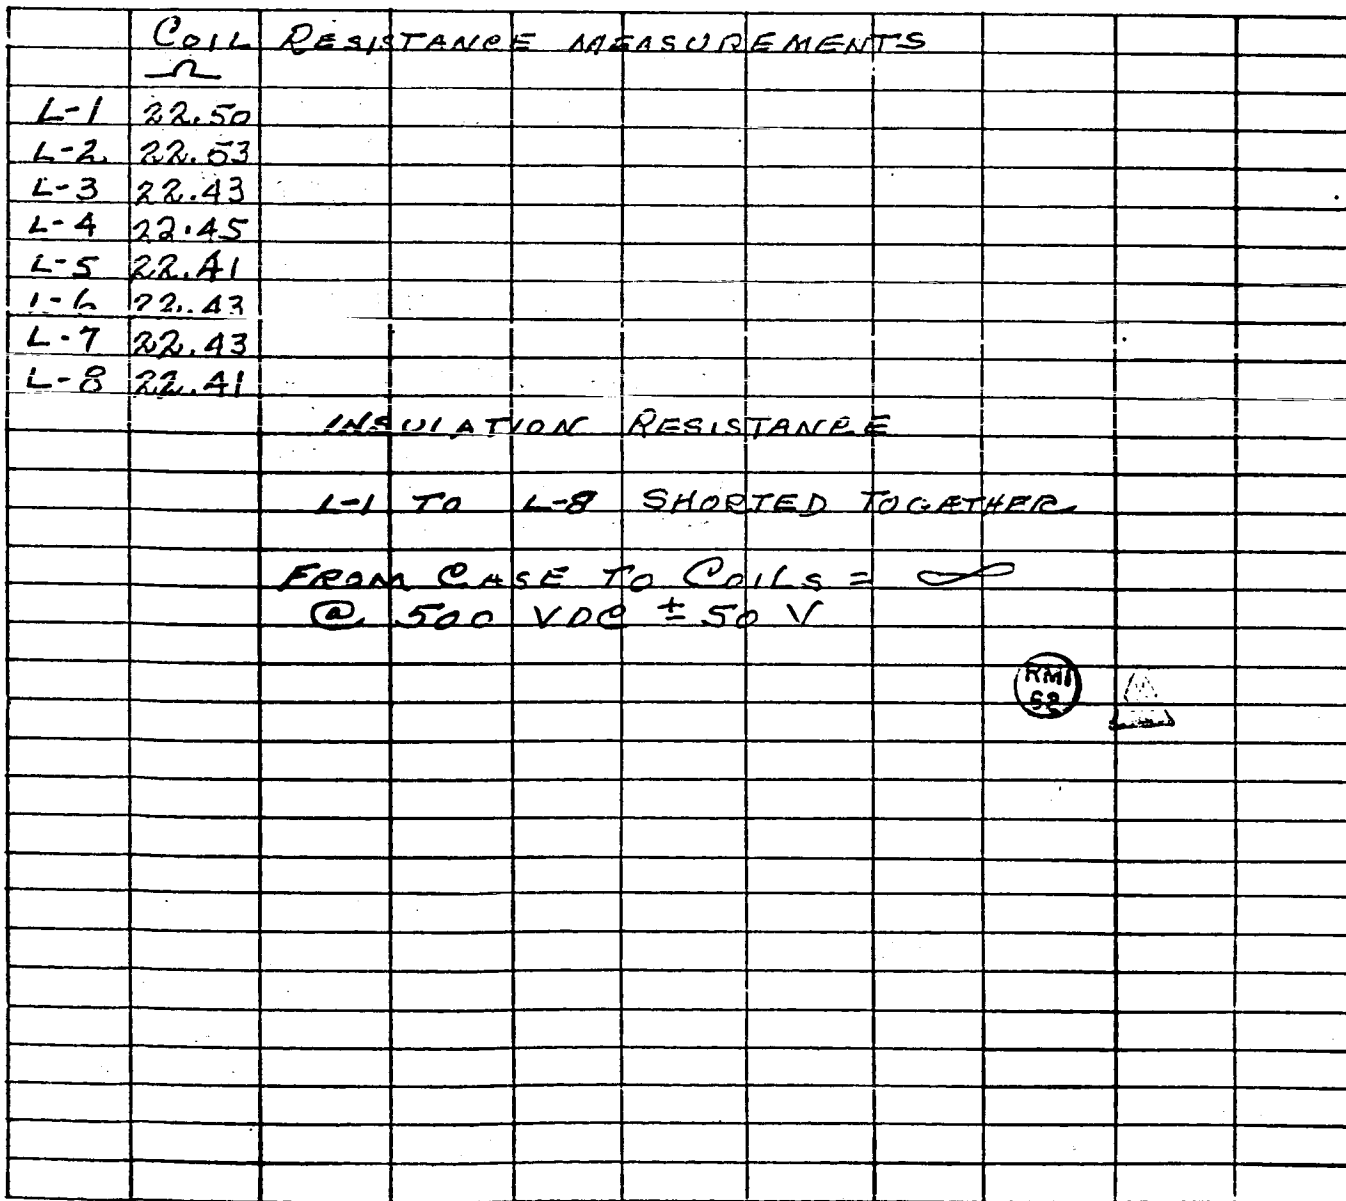 COIL RESISTANCE MEASUREMENTS
Ω
L-1 22.50
L-2 22.53
L-3 22.43
L-4 22.45
L-5 22.41
L-6 22.43
L-7 22.43
L-8 22.41
INSULATION RESISTANCE
L-1 TO L-8 SHORTED TOGETHER
FROM CASE TO COILS = ∞
@ 500 VDC ± 50 V
RMI